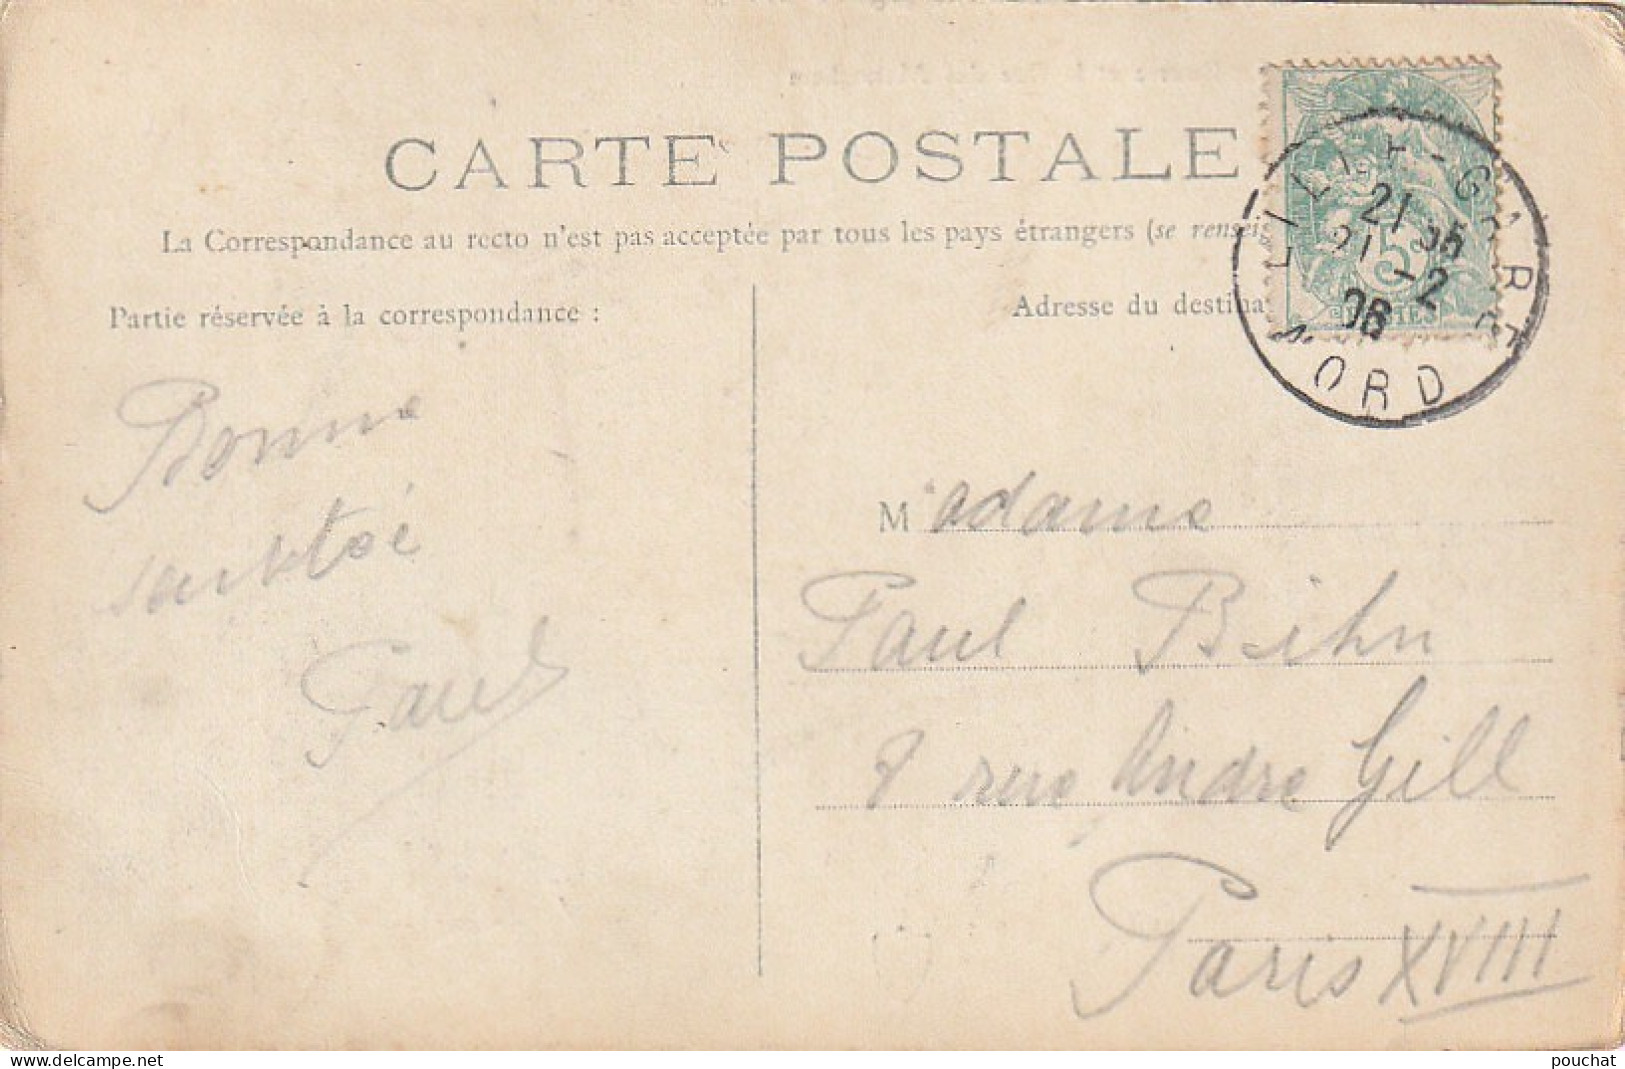 CARTE POSTALE
La Correspondance au recto n'est pas acceptée par tous les pays étrangers (se renseig
Partie réservée à la correspondance :
Adresse du destina
LILLE-GARE
21 35
21 -2
06
NORD
5c
Bonne
santé
Paul
Madame
Paul Bihn
8 rue André Gill
Paris XVIII
pouchat